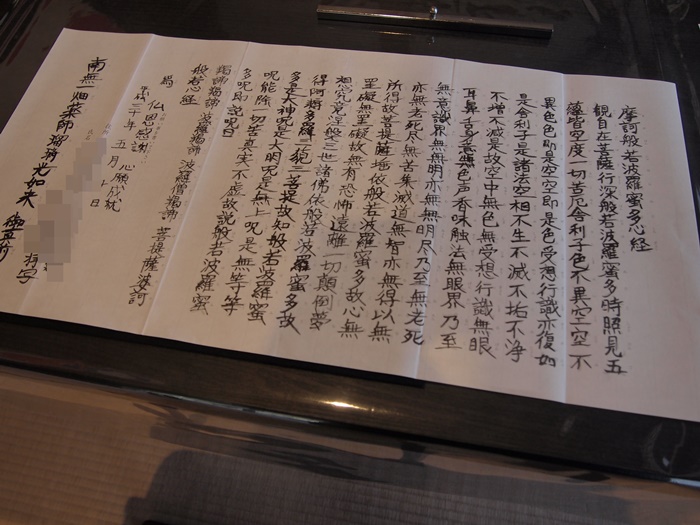 摩訶般若波羅蜜多心経
観自在菩薩行深般若波羅蜜多時照見五
蘊皆空度一切苦厄舎利子色不異空空不
異色色即是空空即是色受想行識亦復如
是舎利子是諸法空相不生不滅不垢不浄
不増不減是故空中無色無受想行識無眼
耳鼻舌身意無色声香味触法無眼界乃至
無意識界無無明亦無無明尽乃至無老死
亦無老死尽無苦集滅道無智亦無得以無
所得故菩提薩埵依般若波羅蜜多故心無
罣礙無罣礙故無有恐怖遠離一切顛倒夢
想究竟涅槃三世諸佛依般若波羅蜜多故
得阿耨多羅三藐三菩提故知般若波羅蜜
多是大神呪是大明呪是無上呪是無等等
呪能除一切苦真実不虚故説般若波羅蜜
多呪即説呪曰
羯諦羯諦波羅羯諦波羅僧羯諦菩提薩婆訶
般若心経
為 仏恩感謝 心願成就
三十年五月 日
南無一畑薬師瑠璃光如来 御宝前